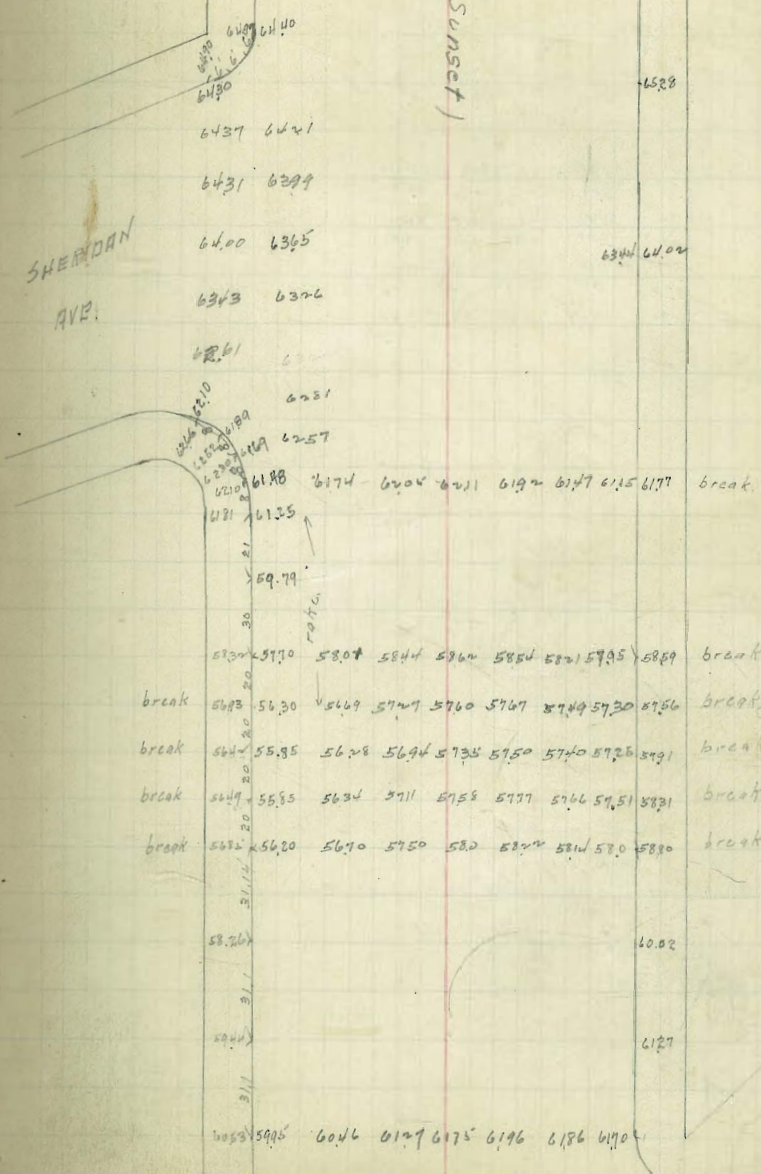 64.40
Sunset)
64.90
64.30
65.28
64.37 64.21
64.31 63.99
SHERIDAN
AVE.
64.00 63.65
63.44 64.02
63.43 63.26
62.61
62.81
62.10
61.89
61.69 62.57
62.10 61.88 61.74 62.05 62.11 61.92 61.47 61.15 61.77 break
61.81 61.25
21
59.79
30
58.32 57.70 58.07 58.44 58.62 58.54 58.21 57.95 58.59 break
20
break 56.93 56.30 56.69 57.27 57.60 57.67 57.49 57.30 57.56 break
20
break 56.42 55.85 56.28 56.94 57.35 57.50 57.40 57.28 57.91 break
20
break 56.49 55.85 56.34 57.11 57.58 57.77 57.66 57.51 58.31 break
20
break 56.85 56.20 56.70 57.50 58.0 58.22 58.14 58.0 58.80 break
31.12
58.26 60.02
31.1
59.44 61.27
31.1
60.53 59.95 60.46 61.27 61.75 61.96 61.86 61.70